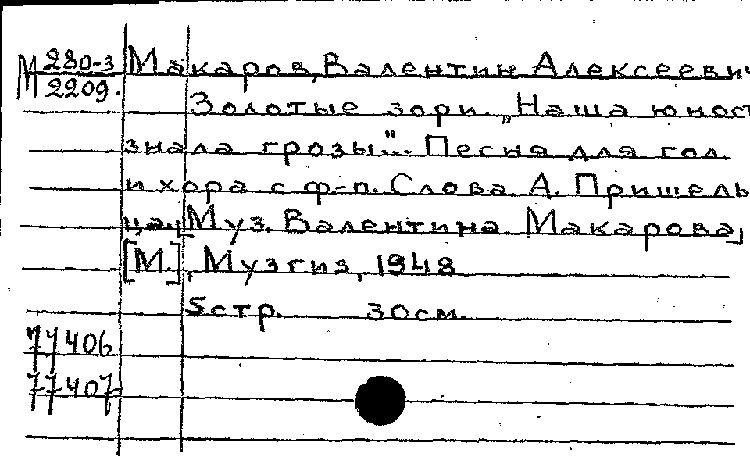 М 280-3 Макаров, Валентин Алексеевич
2209.
Золотые зори. „Наша юност
знала грозы"... Песня для гол.
и хора с ф-п. Слова А. Пришель
ца. [Муз. Валентина Макарова]
[М.], Музгиз, 1948
5 стр. 30 см.
77406
77407